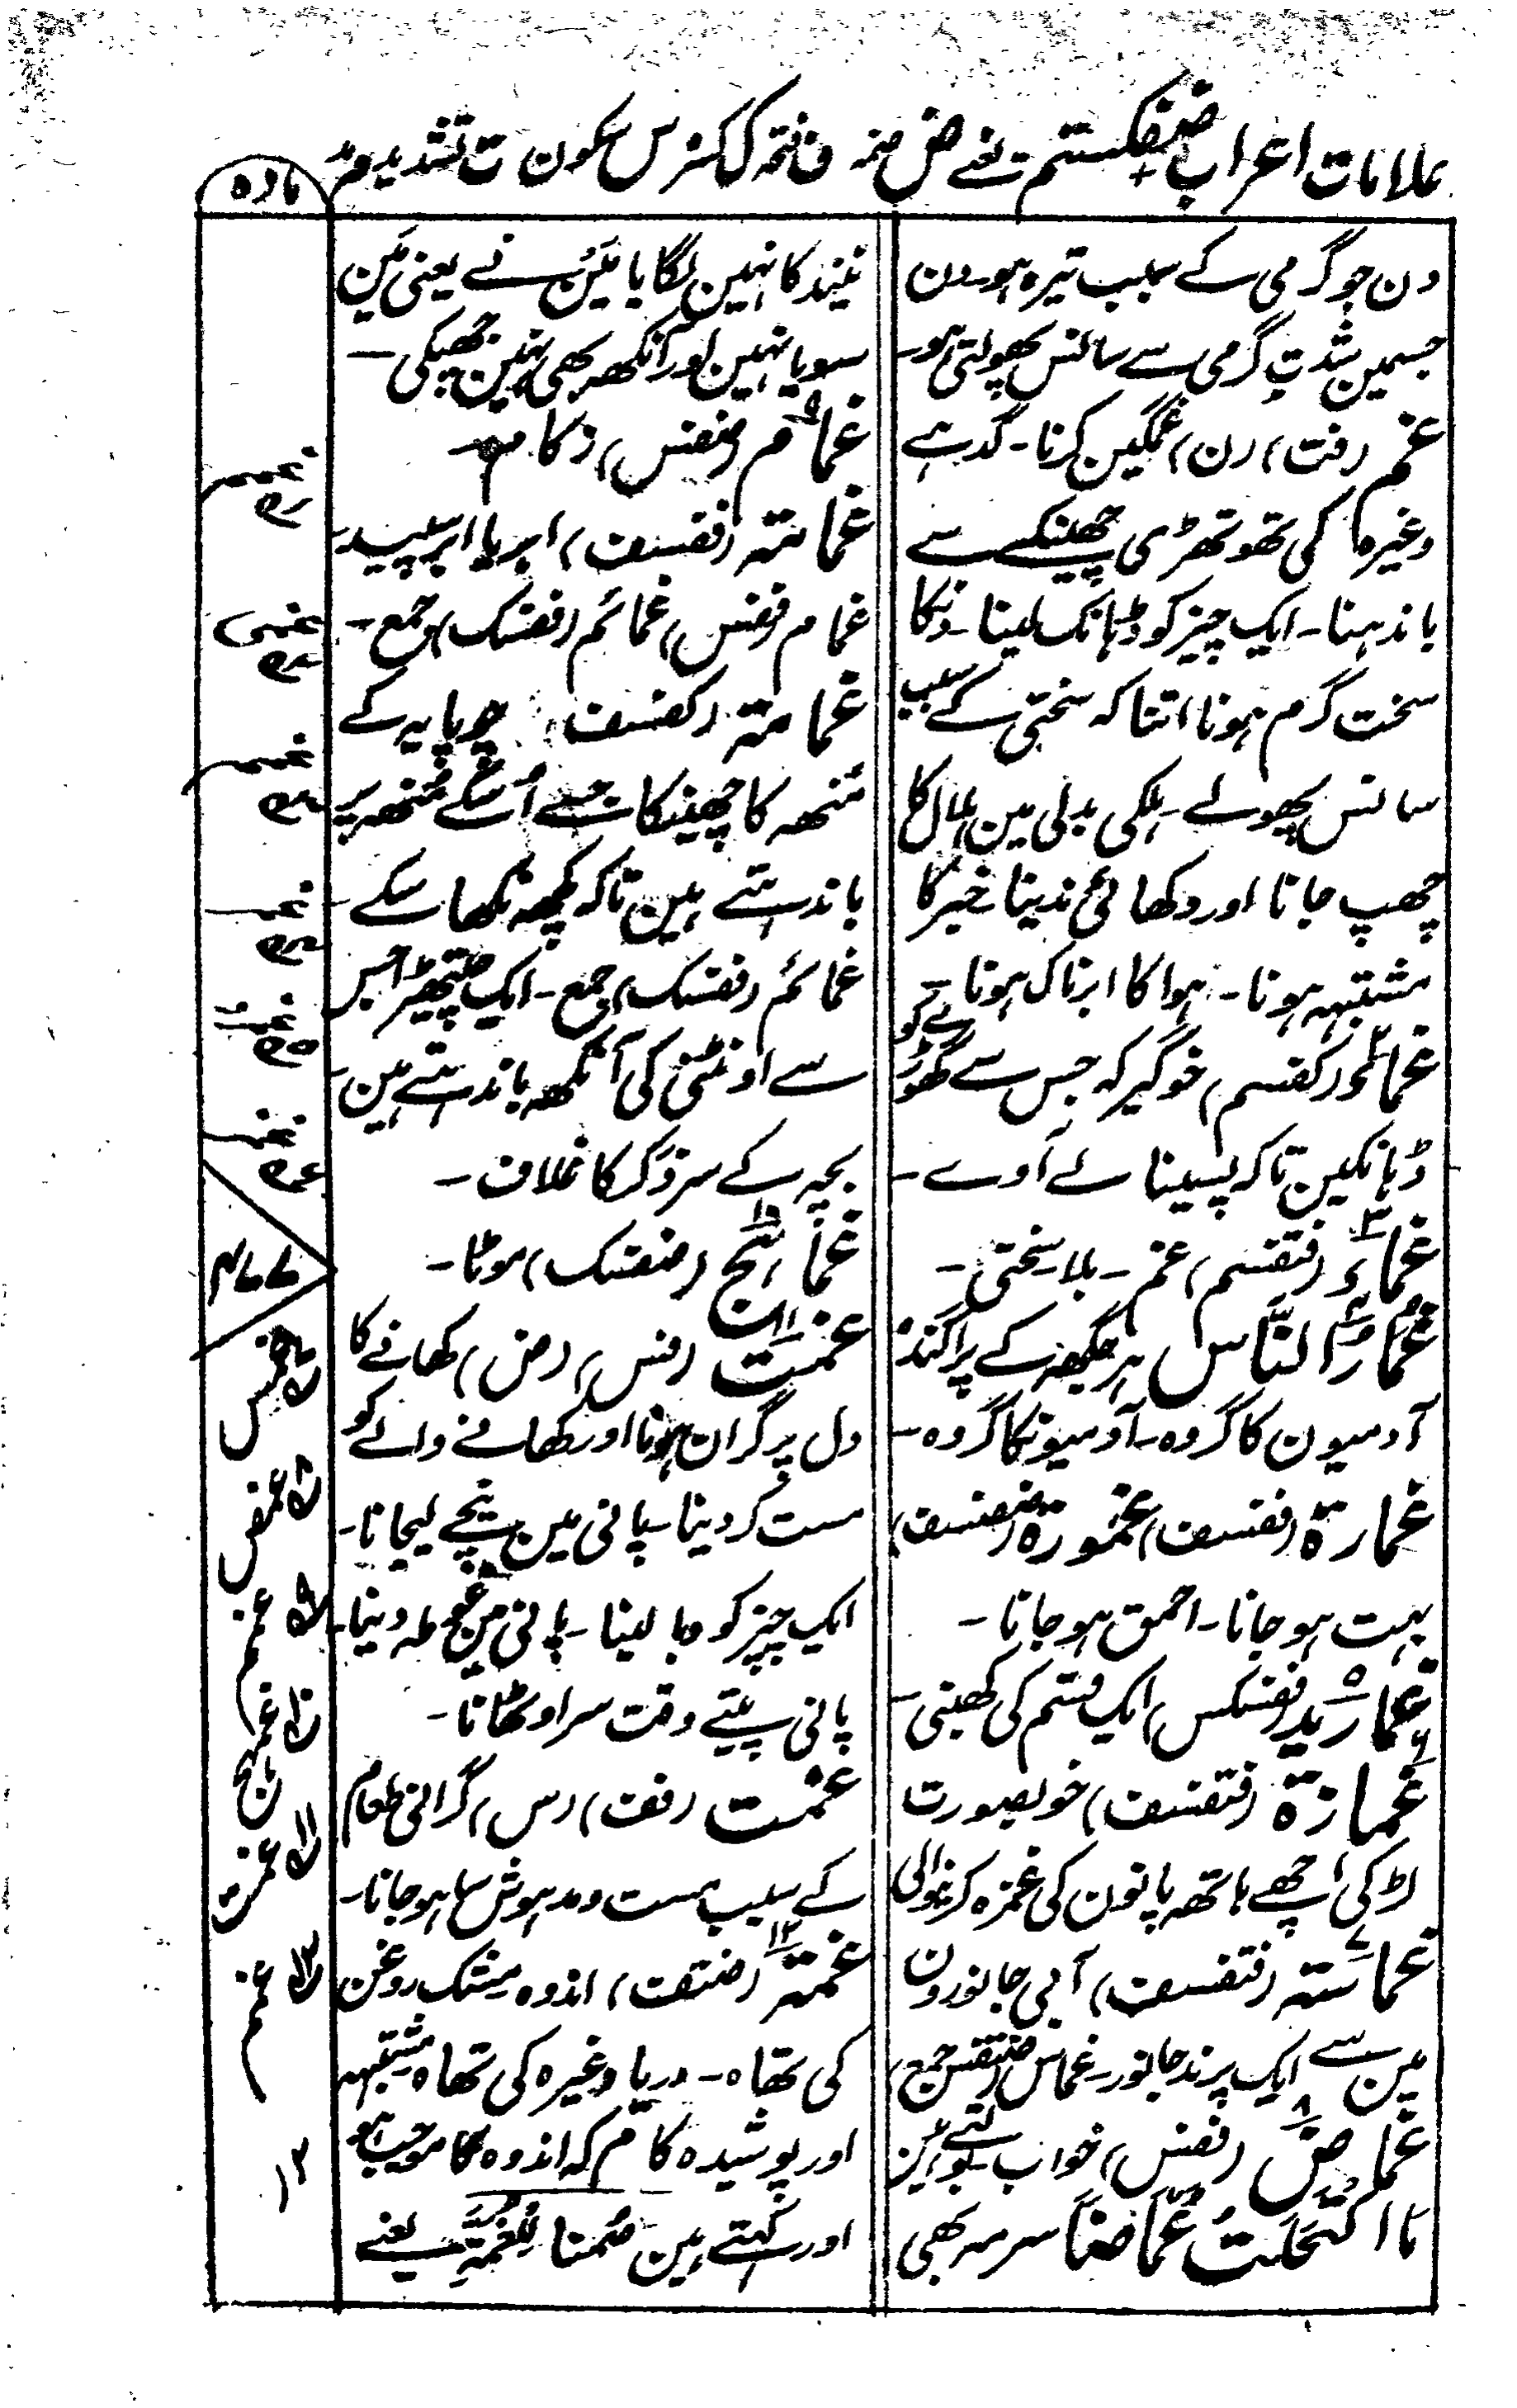 علامات اعراب ضفکستم یعنے ض ضمہ ف فتحہ ک کسر س سکون ت تشدید م مد
مادہ
دن جو گرمی کے سبب تیرہ ہو۔ دن
جسمین شدتِ گرمی سے سانس پھولتی ہو۔
غم (فت) (ن) غمگین کرنا۔ گدہے
وغیرہ کی تھوتھڑی چھینکے سے
باندہنا۔ ایک چیز کو ڈہانک لینا۔ دنکا
سخت گرم ہونا اتنا کہ سختی کے سبب
سانس پھولے۔ ہلکی بدلی مین ہلال کا
چھپ جانا اور دکھائی ندینا۔ خبر کا
مشتبہہ ہونا۔ ہوا کا ابرناک ہونا۔
غماء (کفسم) خوگیر کہ جس سے گھوڑے کو
ڈہانکین تاکہ پسینا لے آوے۔
غماء ۳ (فتفسم) غم۔ بلا۔ سختی۔
غمار ۴ الناس ہر جگہہ کے پراگندہ
آدمیون کا گروہ۔ آدمیونکا گروہ۔
غمارۃ (ففسف) غمورۃ (ضضسف)
بہت ہو جانا۔ احمق ہو جانا۔
غمارید ۵ (ففسکس) ایک قسم کی کھیتی۔
غمازۃ ۶ (فتفسف) خوبصورت
لڑکی اچھے ہاتھ پانون کی غمزہ کرنیوالی
غماستہ ۷ (فتفسف) آبی جانورون
مین سے ایک پرند جانور۔ غماس (ضتفس) جمع
غماض ۸ (ففس) خواب۔ کہتے ہین
ما اکتحلت غماضا سرمہ بھی
نیند کا نہین لگایا مَین نے یعنی مَین
سویا نہین اور آنکھہ بھی نہین جھپکی۔
غمام ۹ (ضفس) زکام۔
غمامتہ (ففسف) ابر یا ابر سپید۔
غمام (ففس) غمائم (ففسک) جمع۔
غمامتہ (کفسف) چوپایہ کے
منھہ کا چھینکا جسے اُسکے منھہ پر
باندہتے ہین تاکہ کچھہ نکھا سکے۔
غمائم (ففسک) جمع۔ ایک چتھیڑا جس
سے اونٹنی کی آنکھہ باندہتے ہین۔
بچہ کے سر ذکر کا غلاف۔
غماہج ۱۰ (ضفسک) موٹا۔
غمت ۱۱ (فس) (ض) کھانے کا
دل پر گران ہونا اور کھانے والے کو
مست کر دینا۔ پانی مین نیچے لیجانا۔
ایک چیز کو دبا لینا۔ پانی مین غوطہ دینا۔
پانی پیتے وقت سر اوٹھانا۔
غمت (فف) (س) گرانی طعام
کے سبب مست و مدہوش سا ہو جانا۔
غمتہ ۱۲ (ضتفت) اندوہ۔ مشک روغن
کی تھاہ۔ دریا وغیرہ کی تھاہ۔ مشتبہہ
اور پوشیدہ کام کہ اندوہ کا موجب ہو
اور کہتے ہین صُمنا للغُمّۃ یعنے